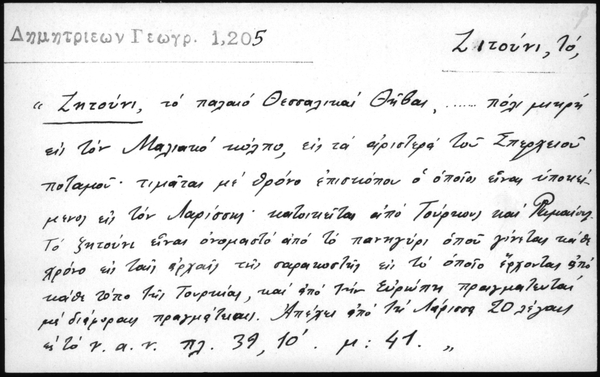 Δημητριεων Γεωγρ. 1,205
Ζιτούνι, τό,
“ Ζητούνι, τό παλαιό Θεσσαλικαί Θήβαι, ...... πόλι μικρή
εις τόν Μαλιακό κόλπο, εις τά αριστερά τοῦ Σπερχειοῦ
ποταμοῦ· τιμᾶται μέ θρόνο επισκόπου ὁ ὁποῖος εἶναι υποκεί-
μενος εις τόν Λαρίσσης· κατοικεῖται από Τούρκους καί Ρωμαίους.
Τό ζητούνι εἶναι ονομαστό από τό πανηγύρι οπού γίνεται κάθε
χρόνο εις ταίς αρχαίς τῆς σαρακοστῆς εις τό ὁποῖο έρχονται από
κάθε τόπο τῆς Τουρκίας, καί από τήν Ευρώπη πραγματευταί
μέ διάφοραις πραγμάτειαις. Απέχει από τή Λάρισσα 20 λέγαις
εις τό ν. α. ν. πλ. 39, 10'. μ: 41. „